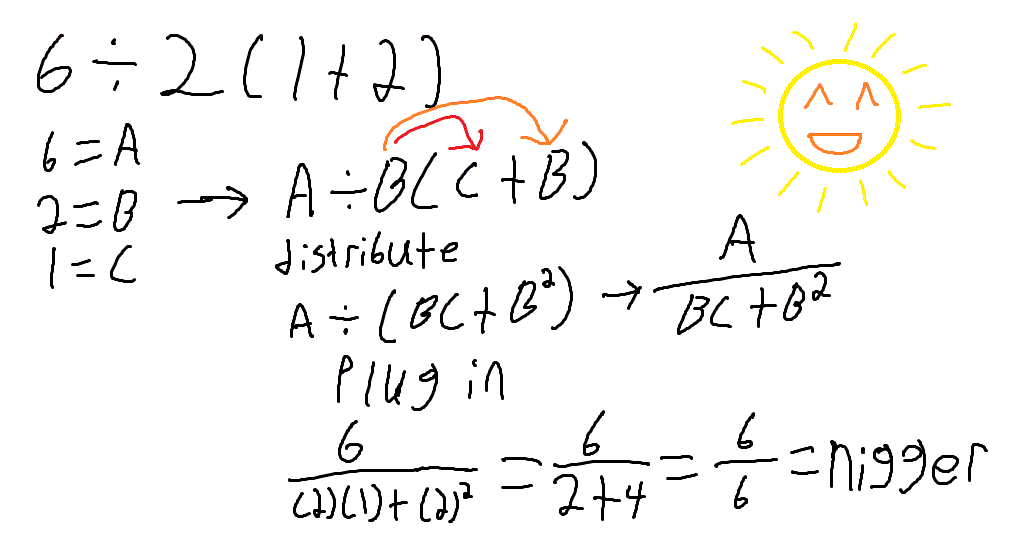 6 ÷ 2 ( 1 + 2 )
6 = A
2 = B → A ÷ B ( C + B )
1 = C
distribute
A ÷ ( BC + B² ) → A / (BC + B²)
Plug in
6 / ((2)(1) + (2)²) = 6 / (2+4) = 6 / 6 = nigger